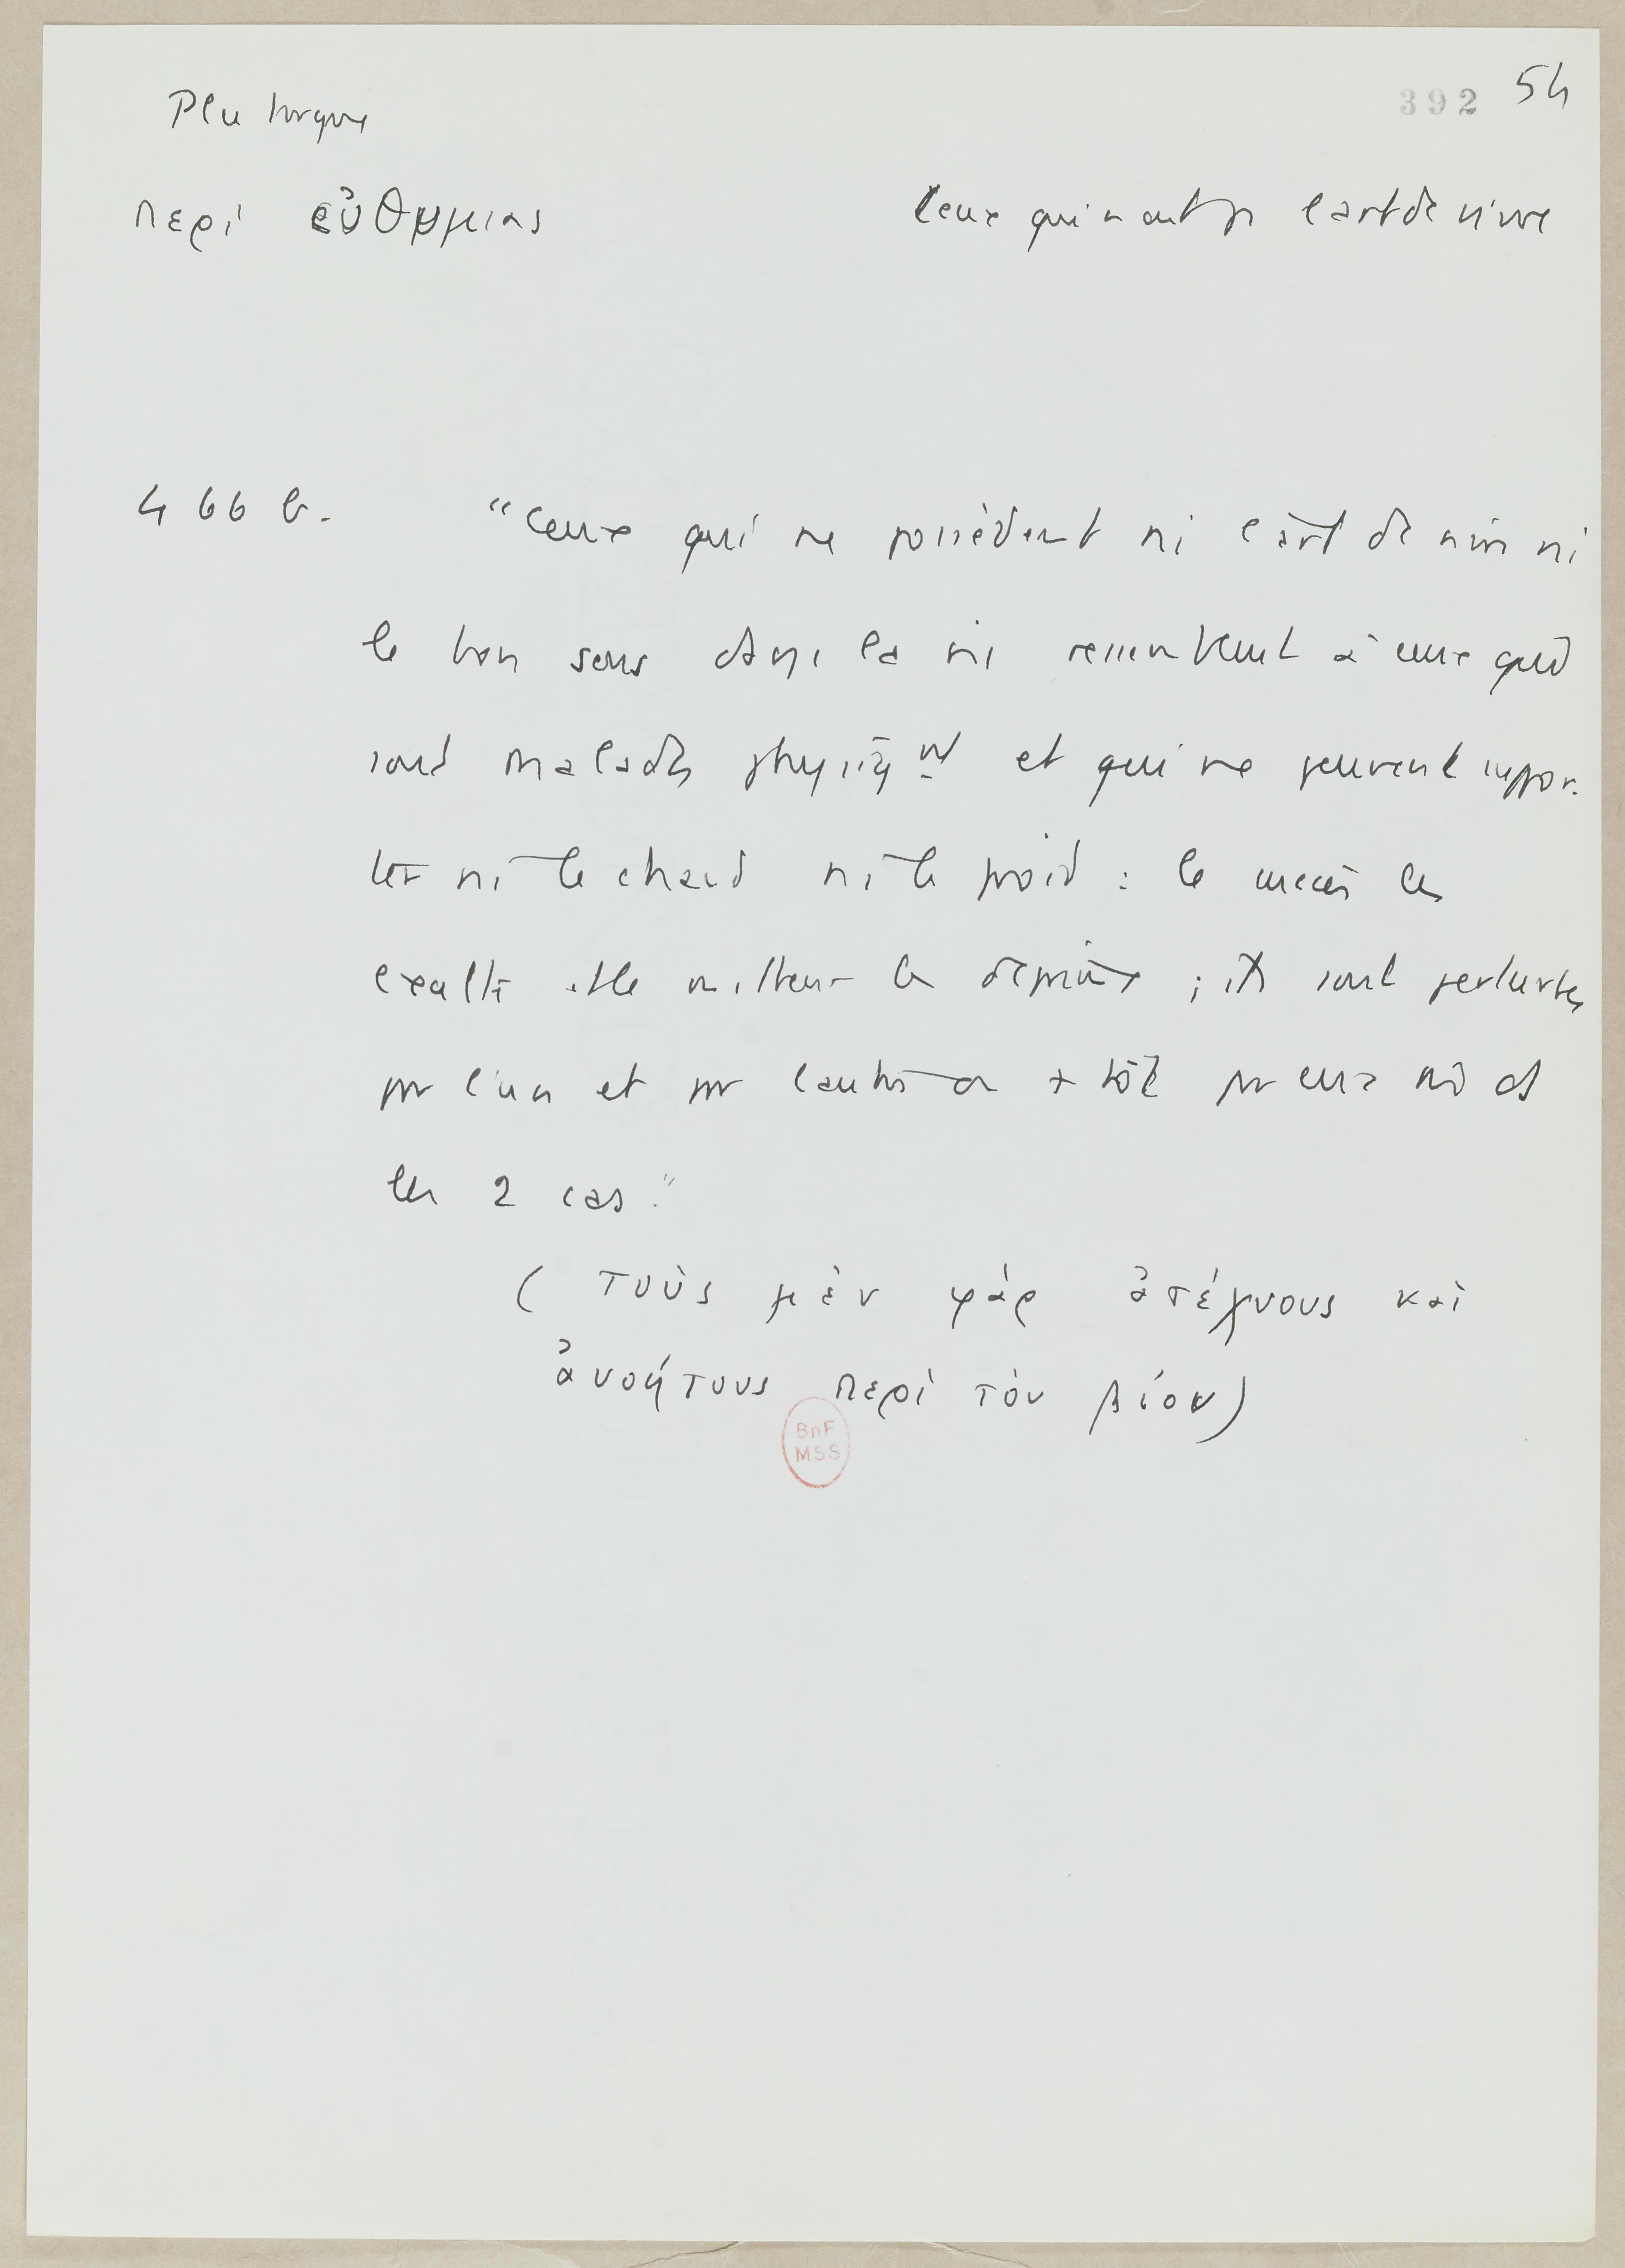 Plutarque
392 54
περὶ εὐθυμιας
Ceux qui n'ont pas l'art de vivre
466 b.
"Ceux qui ne possèdent ni l'art de vivre ni
le bon sens dans la vie ressemblent à ceux qui
sont malades physiqt et qui ne peuvent suppor-
ter ni le chaud ni le froid : le succès les
exalte et le malheur les déprime ; ils sont perturbés
par l'un et par l'autre ou + tôt par eux m̂ ds
les 2 cas."
( τοὺς μὲν γὰρ ἀτέχνους καὶ
ἀνοήτους περὶ τὸν βίον)
BnF
MSS